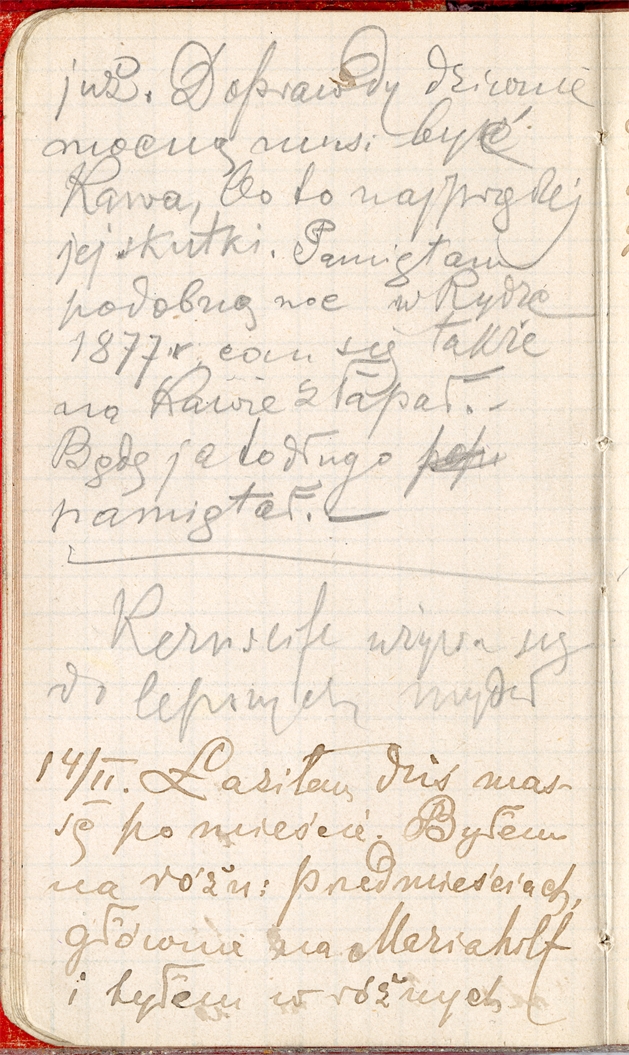 już. Doprawdy dziwnie
mocną musi być
Kawa, bo to najprędzej
jej skutki. Pamiętam
podobną noc w Rydze
1877 r. com się także
na Kawie złapał.-
Będę ja to długo
pamiętał.—
Kernseife używa się
do lepszych mydeł
14/II. Łaziłem dziś mas-
sę po mieście. Byłem
na różn: przedmieściach,
głównie na Mariahilf
i byłem w różnych